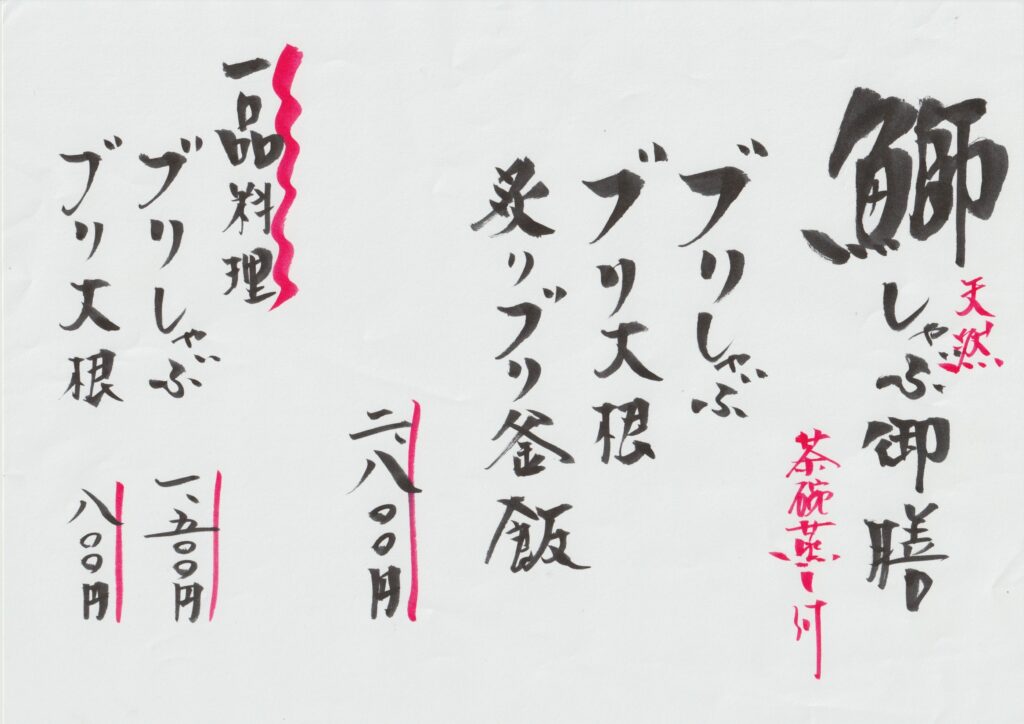 天然
鰤しゃぶ御膳
茶碗蒸し付
ブリしゃぶ
ブリ大根
炙りブリ釜飯
二、八〇〇円
一品料理
ブリしゃぶ
一、五〇〇円
ブリ大根
八〇〇円